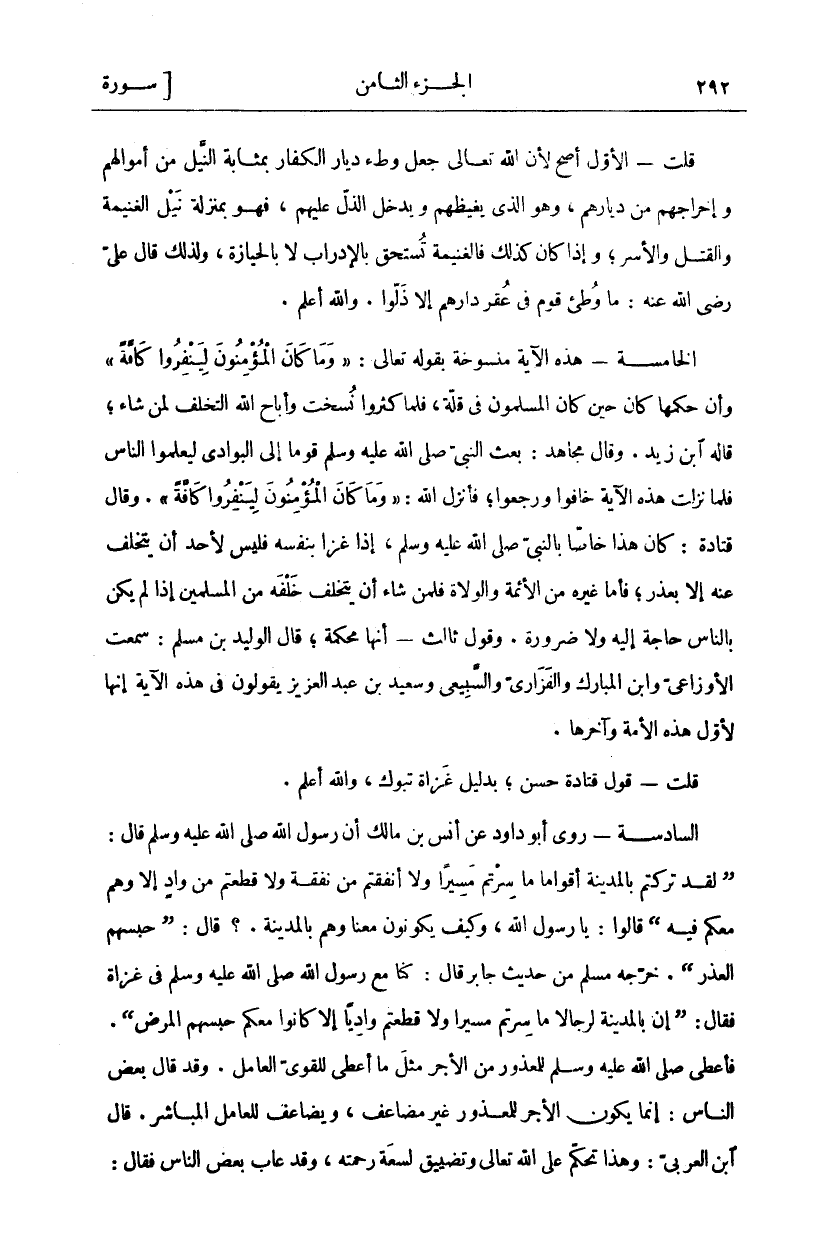 ٢٩٢ الجـزء الثـامن [ سـورة
قلت — الأوّل أصح لأن الله تعـالى جعل وطء ديار الكفار بمثـابة النَّيل من أموالهم
و إخراجهم من ديارهم ، وهو الذى يغيظهم و يدخل الذلّ عليهم ، فهـو بمنزلة نَيْل الغنيمة
والقتـل والأسر ؛ و إذا كان كذلك فالغنيمة تُستحق بالإدراب لا بالحيازة ، ولذلك قال علىّ
رضى الله عنه : ما وُطئ قوم فى عُقر دارهم إلا ذَلّوا . والله أعلم .
الخامسـة — هذه الآية منسوخة بقوله تعالى : « وَمَا كَانَ الْمُؤْمِنُونَ لِيَنْفِرُوا كَافَّةً »
وأن حكمها كان حين كان المسلمون فى قلّة ، فلما كثروا نُسخت وأباح الله التخلف لمن شاء ؛
قاله آبن زيد . وقال مجاهد : بعث النبىّ صلى الله عليه وسلم قوما إلى البوادى ليعلموا الناس
فلما نزلت هذه الآية خافوا ورجعوا ؛ فأنزل الله : « وَمَا كَانَ الْمُؤْمِنُونَ لِيَنْفِرُوا كَافَّةً » . وقال
قتادة : كان هذا خاصًّا بالنبىّ صلى الله عليه وسلم ، إذا غزا بنفسه فليس لأحد أن يتخلف
عنه إلا بعذر ؛ فأما غيره من الأئمة والولاة فلمن شاء أن يتخلف خَلْفَه من المسلمين إذا لم يكن
بالناس حاجة إليه ولا ضرورة . وقول ثالث — أنها محكمة ؛ قال الوليد بن مسلم : سمعت
الأوزاعىّ وابن المبارك والفَزَارىّ والسَّبِيعى وسعيد بن عبد العزيز يقولون فى هذه الآية إنها
لأوّل هذه الأمة وآخرها .
قلت — قول قتادة حسن ؛ بدليل غَزاة تبوك ، والله أعلم .
السادسـة — روى أبو داود عن أنس بن مالك أن رسول الله صلى الله عليه وسلم قال :
” لقـد تركتم بالمدينة أقواما ما سِرْتم مَسِيرًا ولا أنفقتم من نفقـة ولا قطعتم من وادٍ إلا وهم
معكم فيـه “ قالوا : يا رسول الله ، وكيف يكونون معنا وهم بالمدينة . ؟ قال : ” حبسهم
العذر “ . خرّجه مسلم من حديث جابر قال : كنا مع رسول الله صلى الله عليه وسلم فى غزاة
فقال : ” إن بالمدينة لرجالا ما سِرتم مسيرا ولا قطعتم واديًا إلا كانوا معكم حبسهم المرض “ .
فأعطى صلى الله عليه وسـلم للعذور من الأجر مثلَ ما أعطى للقوىّ العامل . وقد قال بعض
النـاس : إنما يكون الأجر للعـذور غير مضاعف ، ويضاعف للعامل المباشر . قال
آبن العربىّ : وهذا تحكّم على الله تعالى وتضييق لسعة رحمته ، وقد عاب بعض الناس فقال :